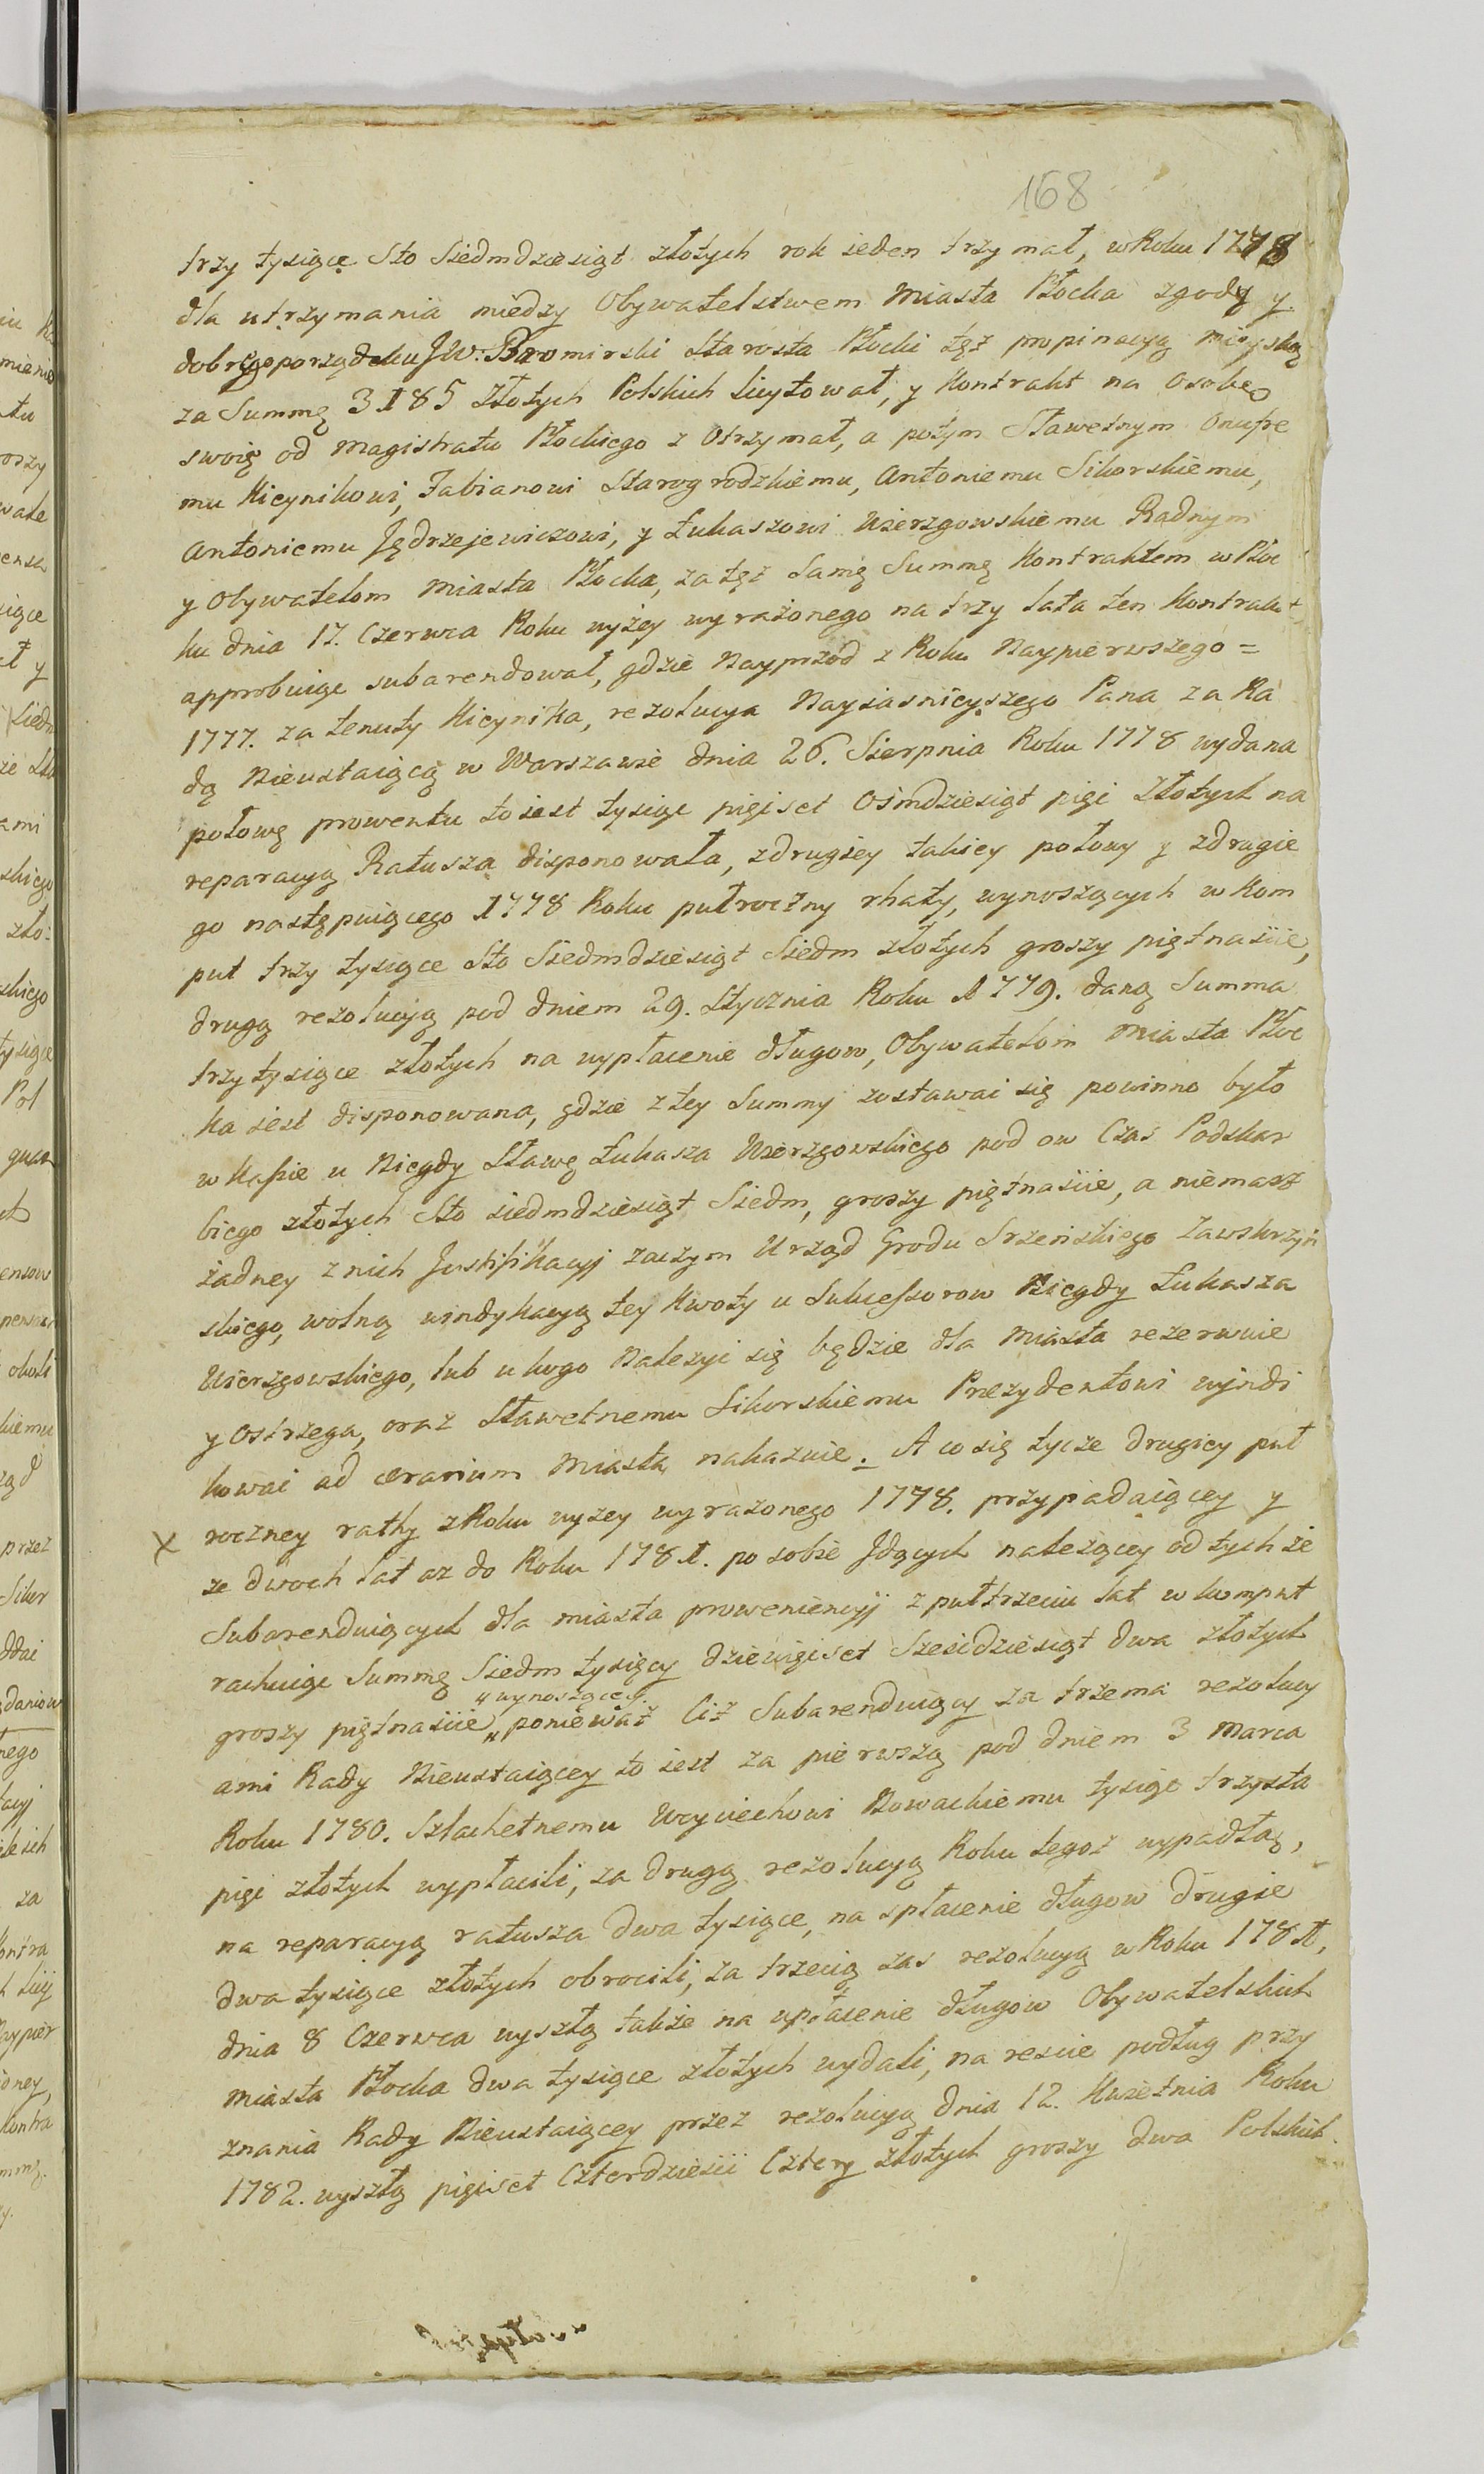 168
trzy tysiące Sto Siedmdziesiąt złotych rok ieden trzymał, w Roku 1778
dla utrzymania między Obywatelstwem Miasta Płocka zgody y
dobrego porządku JW. Bromirski Starosta Płocki tęż propinacyą mieyską
za Summę 3185 Złotych Polskich licytował, y Kontrakt na osobę
swoię od Magistratu Płockiego z Otrzymał, a potym Sławetnym Onufre
mu Kicynikowi, Fabianowi Starogrodzkiemu, Antoniemu Sikorskiemu,
Antoniemu Jędrzejewiczowi, y Łukaszowi Wierzgowskiemu Radnym
y Obywatelom Miasta Płocka, za tęż Samę Summę Kontraktem w Płoc
ku dnia 17. Czerwca Roku wyżey wyrażonego na trzy lata ten Kontrakt
approbuiąc subarendował, gdzie Nayprzod z Roku Naypierwszego =
1777. za tenuty Kicynika, rezolucya Nayiasnieyszego Pana za Ra
dą Nieustaiącą w Warszawie dnia 26. Sierpnia Roku 1778 wydana
połowę prowentu to iest tysiąc pięcset Ośmdziesiąt pięć Złotych na
reparacyą Ratusza disponowała, z drugiey takiey połowy y z drugie
go następuiącego 1778 Roku pułroczny rhaty, wynoszących w Kom
put trzy tysiące Sto Siedmdziesiąt Siedm złotych groszy piętnaście,
drugą rezolucyą pod dniem 29. Stycznia Roku 1779. daną Summa
trzy tysiące złotych na wypłacenie długow, Obywatelom Miasta Płoc
ka iest disponowana, gdzie z tey Summy zostawać się powinno było
w Kaſsie u Niegdy Sławę Łukasza Wierzgowskiego pod ow Czas Podskar
biego złotych Sto siedmdziesiąt Siedm, groszy piętnaście, a niemasz
żadney z nich Justifikacyj zaczym Urząd Grodu Srzeńskiego Zawskrzyń
skiego, wolną windykacyą tey Kwoty u Sukceſsorow Niegdy Łukasza
Wierzgowskiego, lub u kogo Należyć się będzie dla Miasta rezerwuie
y Ostrzega, oraz Sławetnemu Sikorskiemu Prezydentowi wyindi
kować ad ærarium Miasta nakazuie. A co się tycze drugiey puł
X roczney rathy z Roku wyzey wyrazonego 1778. przypadaiącey y
ze dwoch lat az do Roku 1781. po sobie Jdących należącey od tych że
Subarenduiących dla miasta proweniencyj z pułtrzeciu lat w komput
rachuiąc Summę Siedm tysięcy dziewięcset Sześćdziesiąt dwa złotych
groszy piętnaście „ poniewaz Ciż Subarenduiący za trzema rezolucy
„ wynoszącey.
ami Rady Nieustaiącey to iest za pierwszą pod dniem 3 Marca
Roku 1780. Szlachetnemu Woyciechowi Nowackiemu tysiąc trzysta
pięć złotych wypłacili, za drugą rezolucyą Roku tegoż wypadłą,
na reparacyą ratusza dwa tysiące, na spłacenie długow drugie
dwa tysiące złotych obrocili, za trzecią zas rezolucyą w Roku 1781,
dnia 8 Czerwca wyszłą także na wpłacenie długow Obywatelskich
Miasta Płocka dwa tysiące złotych wydali, na resście podług przy
znania Rady Nieustaiącey przez rezolucyą dnia 12. Kwietnia Roku
1782. wyszłą pięcset Czterdzieści Cztery złotych groszy dwa Polskich.